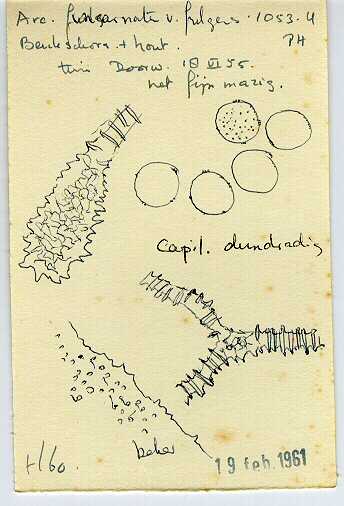 Arc. v. fulgens. 1053. 4
Beukschors + hout. PH
tuin Doorw. 18 VI 55.
net fijn mazig.
capil. dundradig
beker
t/60.
19 feb. 1961